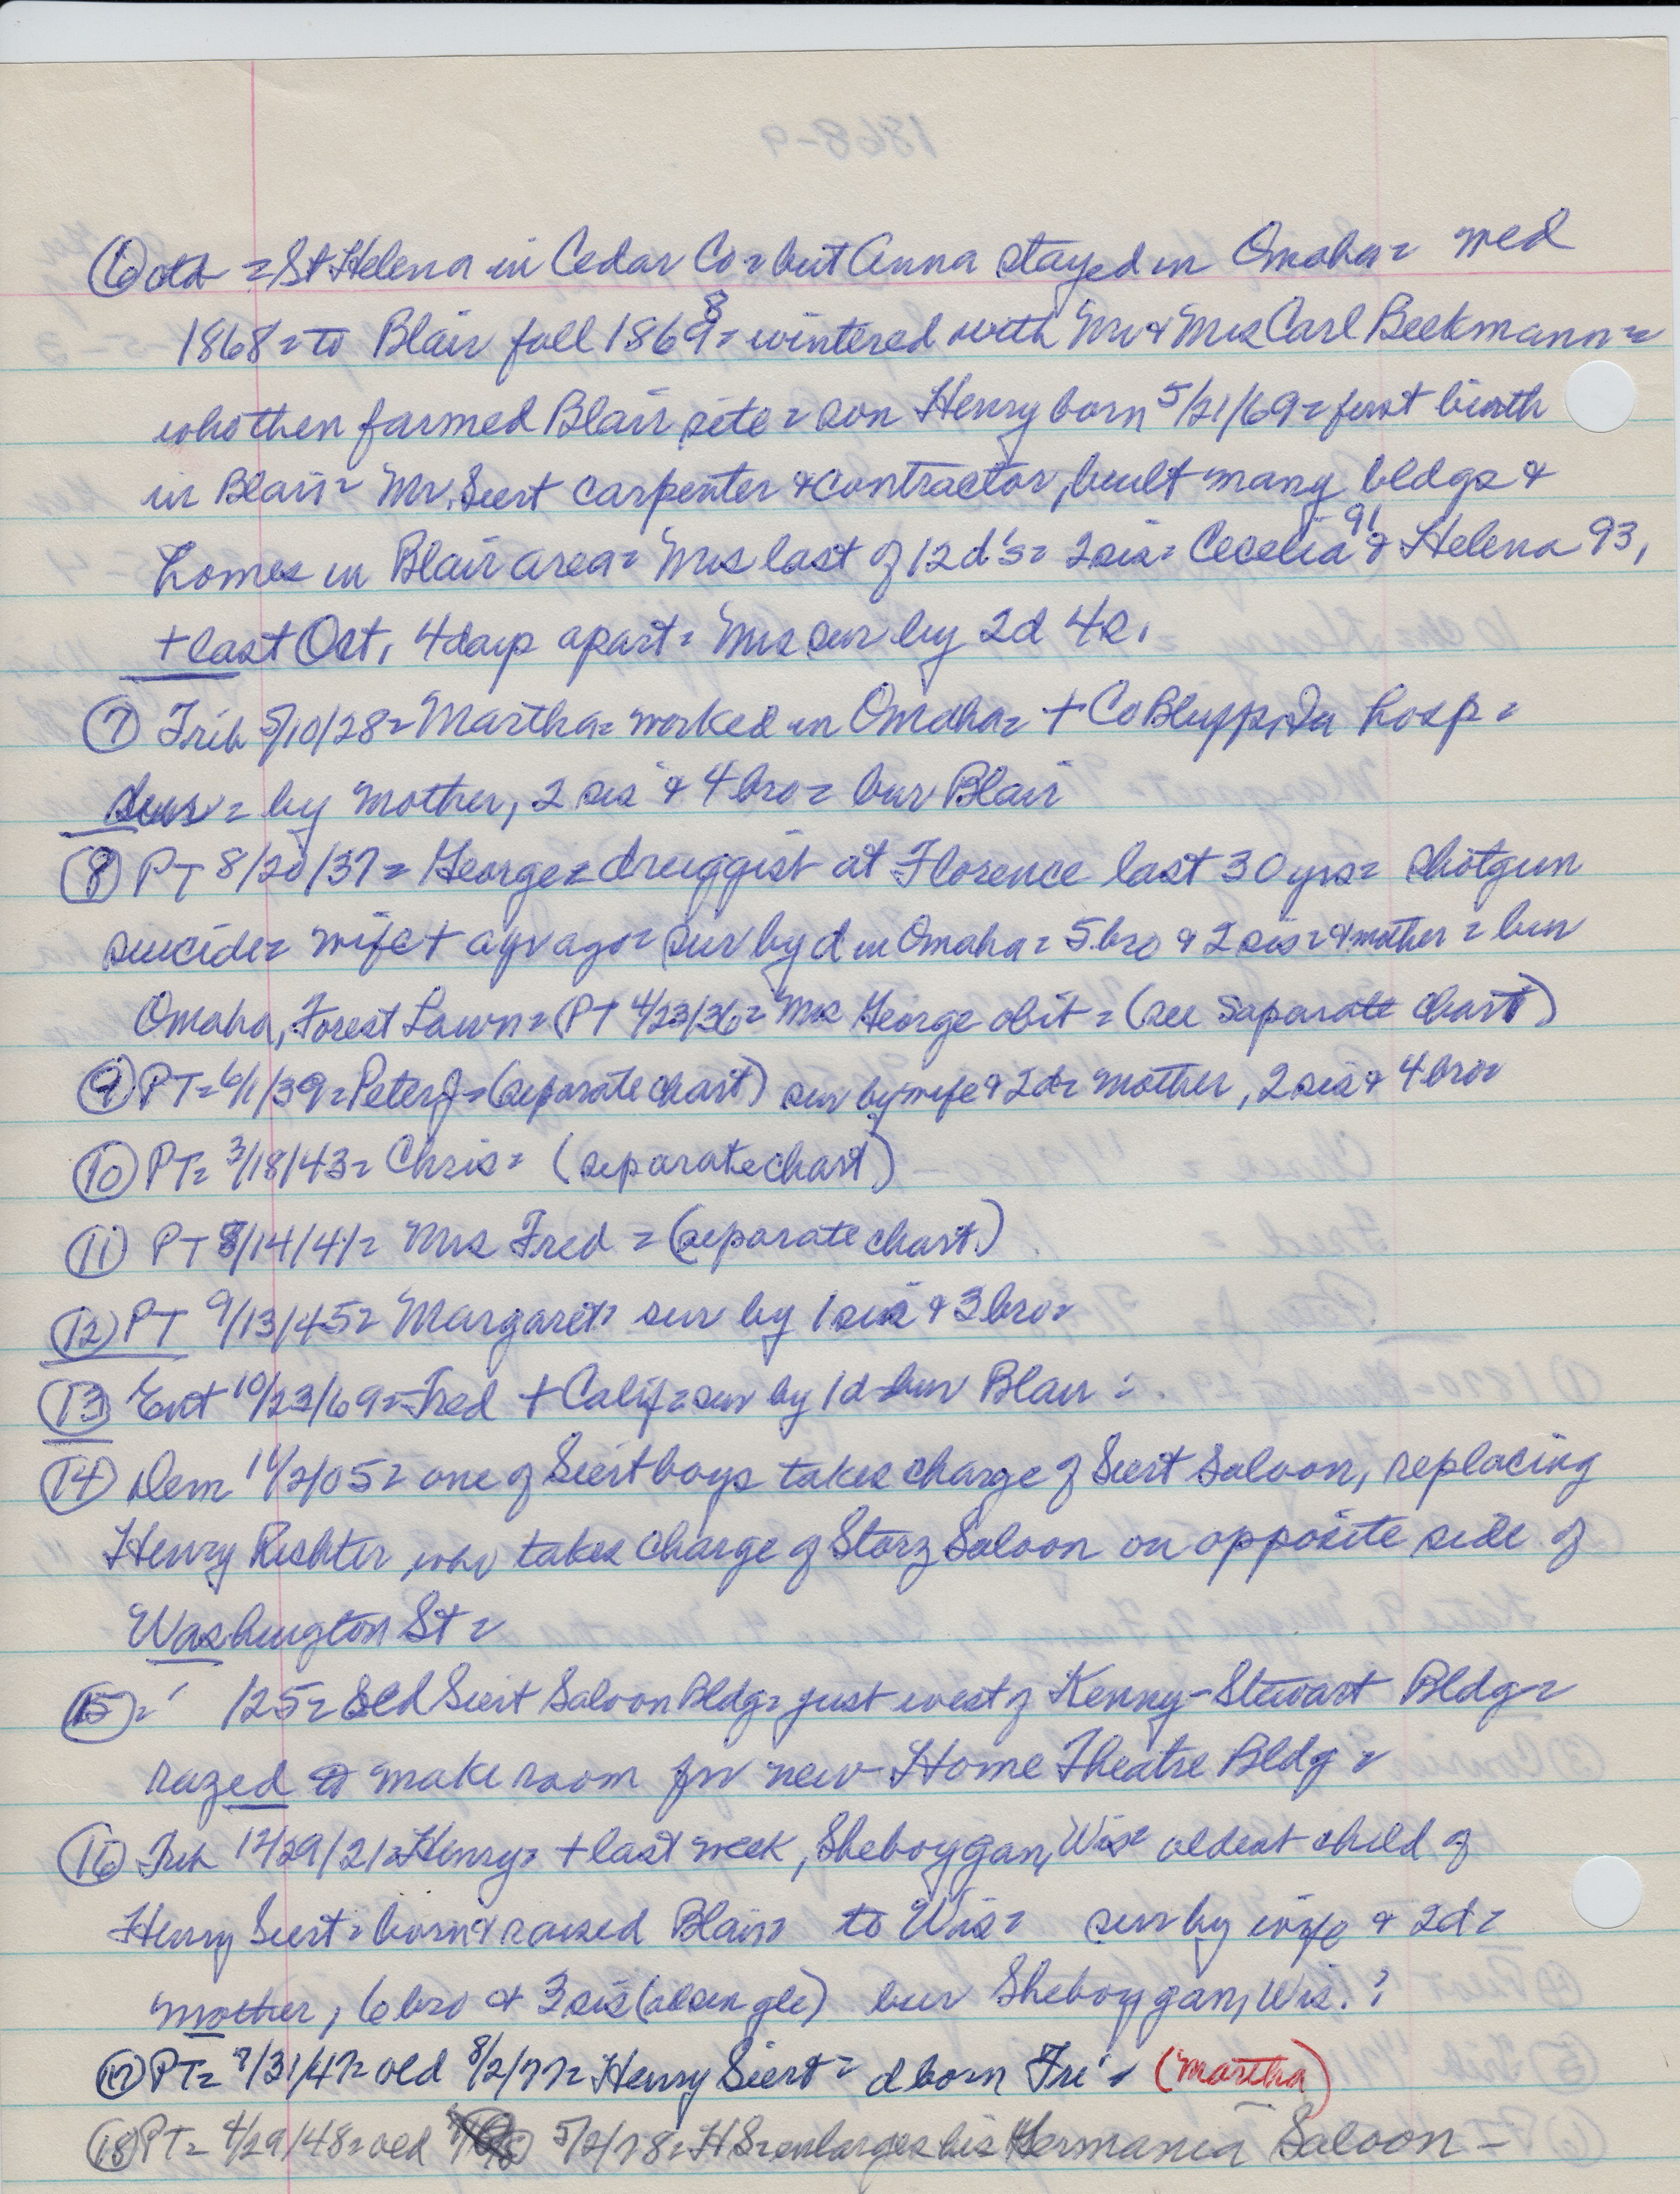 1868-9
(6) ctd = St Helena in Cedar Co = but Anna stayed in Omaha = wed
1868 = to Blair fall 1869 8 = wintered with Mr & Mrs Carl Beekmann =
who then farmed Blair site = son Henry born 5/21/69 = first birth
in Blair = Mr. Siert carpenter & contractor, built many bldgs &
homes in Blair area = Mrs last of 12 d's = 2 sis = Cecelia 91 & Helena 93,
+ last Oct, 4 days apart = Mrs sur by 2d 4s.
(7) Trib 5/10/28 = Martha = worked in Omaha = + Co Bluffs, Ia hosp =
sur = by mother, 2 sis & 4 bro = bur Blair
(8) PT 8/20/37 = George = druggist at Florence last 30 yrs = shotgun
suicide = wife + a yr ago = sur by d in Omaha = 5 bro & 2 sis = & mother = bur
Omaha, Forest Lawn = (PT 4/23/36 = Mrs George obit = (see Saparate chart)
(9) PT = 6/1/39 = Peter J = (separate chart) sur by wife & 2d = mother, 2 sis & 4 bro =
(10) PT = 3/18/43 = Chris = (separate chart)
(11) PT 8/14/41 = Mrs Fred = (separate chart)
(12) PT 9/13/45 = Margaret = sur by 1 sis & 3 bro =
(13) Ent 10/23/69 = Fred + Calif = sur by 1d = bur Blair =
(14) Dem 11/2/05 = one of Siert boys takes charge of Siert Saloon, replacing
Henry Richter, who takes charge of Storz Saloon on opposite side of
Washington St =
(15) = /25 = Old Siert Saloon Bldg = just west of Kenny-Stewart Bldg =
razed to make room for new Home Theatre Bldg =
(16) Trib 12/29/21 = Henry = + last week, Sheboygan, Wis = oldest child of
Henry Siert = born & raised Blair = to Wis = sur by wife & 2d =
mother, 6 bro & 3 sis (all single) bur Sheboygan, Wis. ?
(17) PT = 7/31/47 = old 8/2/77 = Henry Siert = d born Fri = (Martha)
(18) PT = 4/29/48 = old 5/2/78 = HS enlarges his Germania Saloon -